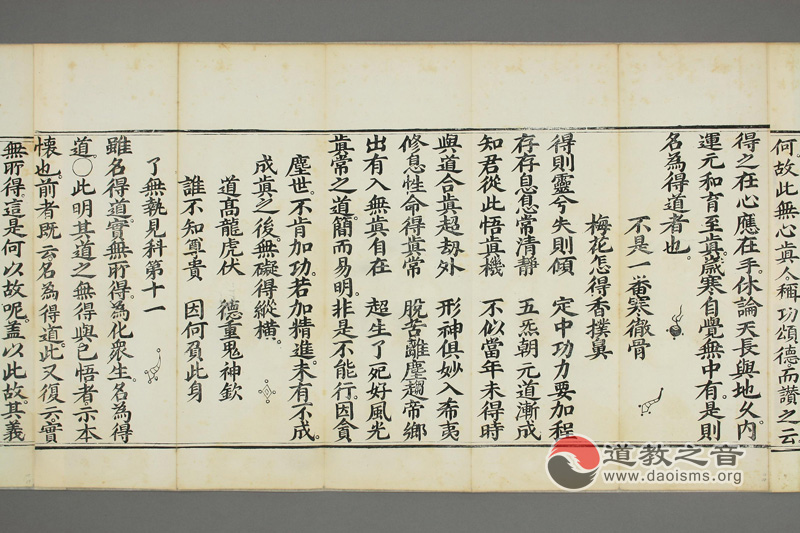 何。故此無心眞人。稱功頌德。而讚之云
得之在心應在手。休論天長與地久。內
運元和育至眞。歲寒自覺無中有。是則
名為得道者也。
不是一番寒徹骨
梅花怎得香撲鼻
得則靈兮失則傾　定中功力要加程
存存息息常清靜　五炁朝元道漸成
知君從此悟眞機　不似當年未得時
與道合眞超劫外　形神俱妙入希夷
修息性命得眞常　脫苦離塵趨帝鄉
出有入無眞自在　超生了死好風光
眞常之道。簡而易明。非是不能行。因貪
塵世。不肯加功。若加精進。未有不成。
成眞之後。無礙得縱橫。
道髙龍虎伏　德重鬼神欽
誰不知尊貴　因何負此身
了無執見科第十一
雖名得道。實無所得。為化衆生。名為得
道。○此明其道之無得。與已悟者。示本
懐也。前者既云名為得道。此又復云。實
無所得。這是何以故呢。盖以此故。其義
道教之音
www.daoisms.org